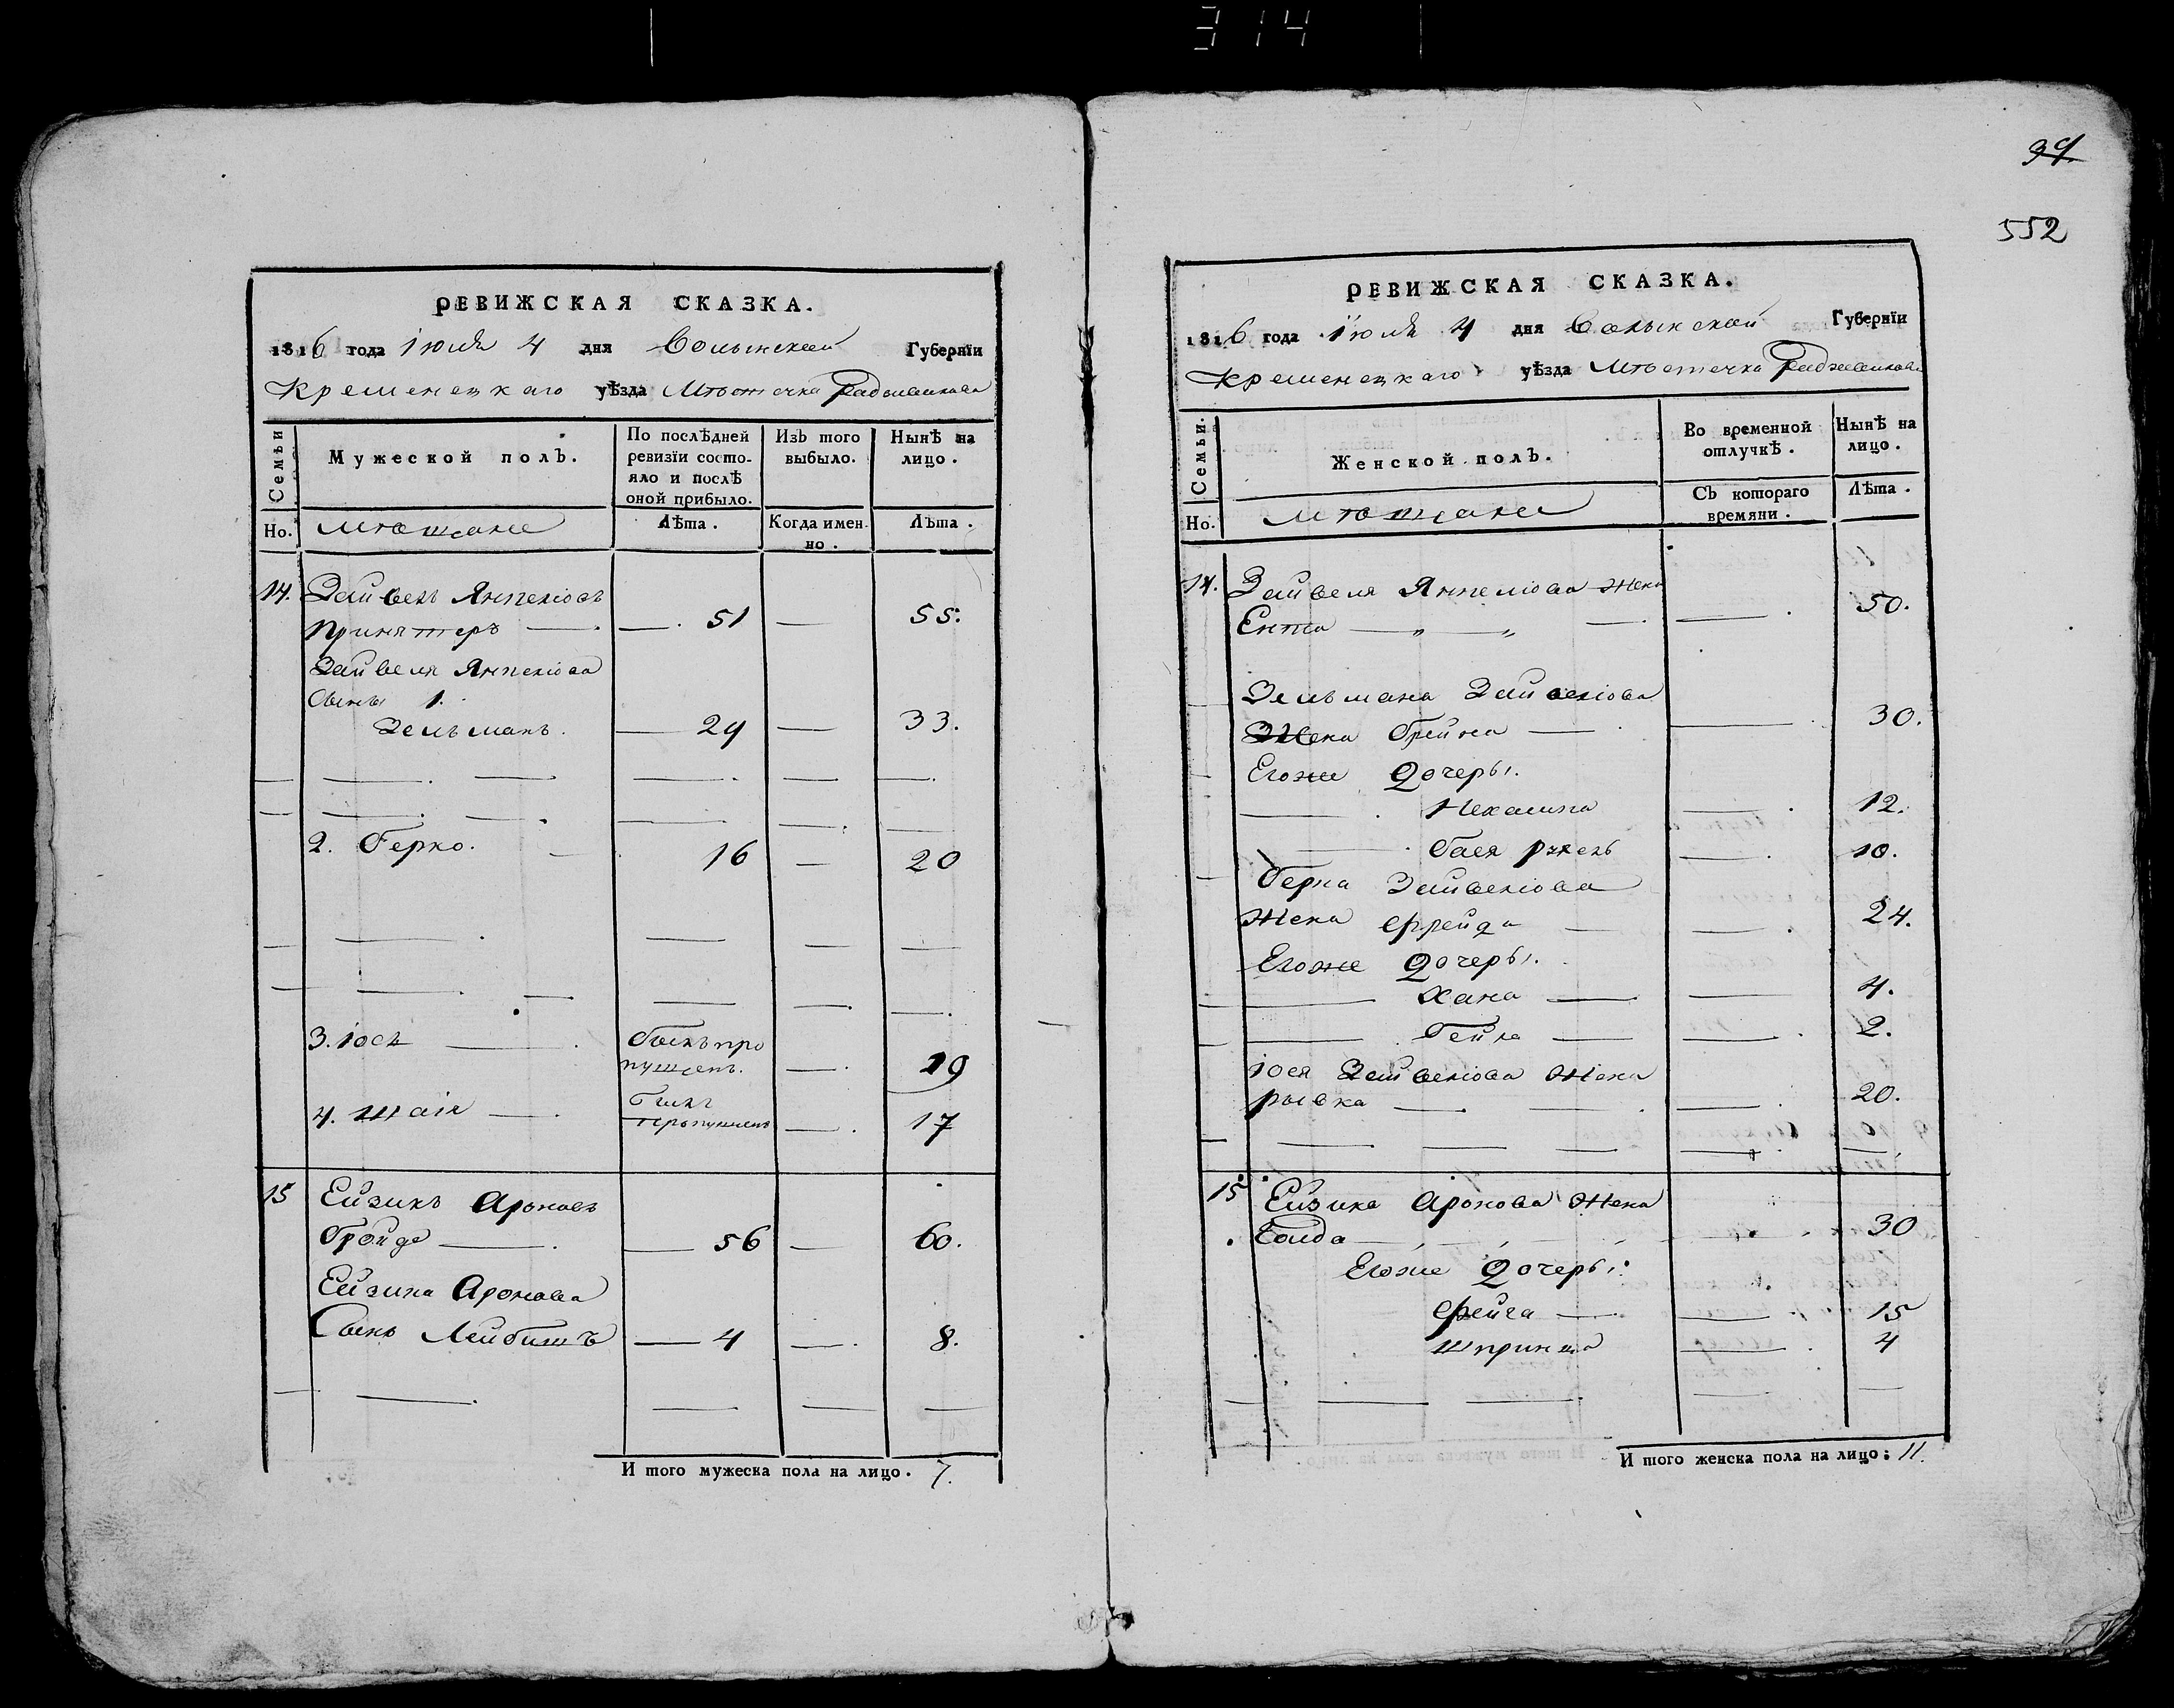 314
РЕВИЖСКАЯ СКАЗКА.
1816 года Iюля 4 дня Волынской Губернїи
Кременецкаго уѣзда Мѣстечка Радзивилова
Семьи
Мужеской полъ.
По послѣдней ревизїи состояло и послѣ оной прибыло.
Изъ того выбыло.
Нынѣ на лицо.
Но. мѣщане
Лѣта.
Когда именно.
Лѣта.
14. Зейвель Янкеліовъ
— 51 — 55.
Зейвеля Янкеліова
Сынъ 1.
Зельманъ. — 29 — 33.
2. Берко. — 16 — 20
3. Іось — былъ про
пущенъ. — 19
4. Шаія — былъ
пропущенъ — 17
15 Ейзикъ Ароновъ
Бройде — 56 — 60.
Ейзика Аронова
Сынъ Лейбишъ — 4 — 8.
И того мужеска пола на лицо. 7.
39
552
РЕВИЖСКАЯ СКАЗКА.
1816 года Iюля 4 дня Волынской Губернїи
Кременецкаго уѣзда Мѣстечка Радзивилова
Семьи.
Женской полъ.
Во временной отлучкѣ.
Нынѣ на лицо.
Но. мѣщане
Съ котораго времяни.
Лѣта.
14. Зейвеля Янкеліова Жена
Ента — — 50.
Зельмана Зейвеліова
Жена Брейна — — 30.
Егоже Дочеры.
Нехамка — 12.
Бася — 10.
Берка Зейвеліова
Жена Фрейда — — 24.
Егоже Дочеры.
Хана — — 4.
Бейла — — 2.
Іося Зейвеліова Жена
Рывка — — 20.
15 Ейзика Аронова Жена
Голда — 30
Егоже Дочеры:
Фейга — — 15
Шпринца — 4
И того женска пола на лицо: 11.